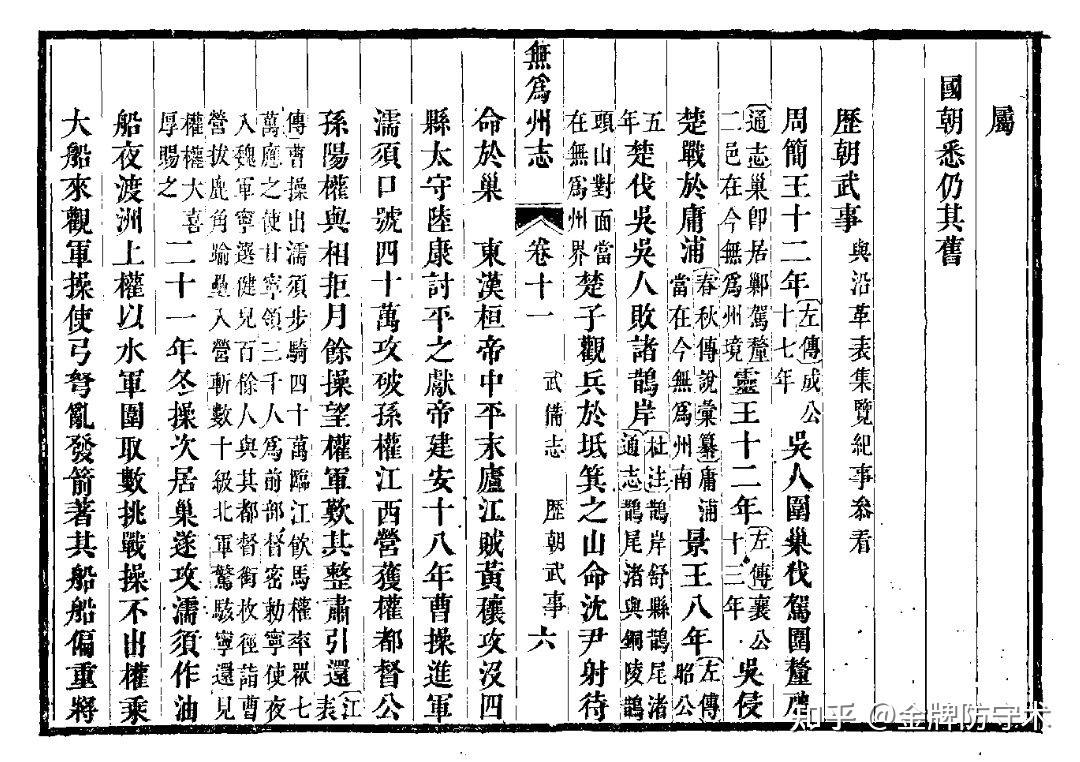 屬
國朝悉仍其舊
歷朝武事與沿革表集覽紀事叅看
周簡王十二年左傳成公十七年吳人圍巢伐駕圍釐虺
通志巢卽居鄛駕釐二邑在今無爲州境靈王十二年左傳襄公十三年吳侵
楚戰於庸浦春秋傳說彙纂庸浦當在今無爲州南景王八年左傳昭公
五年楚伐吳吳人敗諸鵲岸杜注鵲岸舒縣鵲尾渚通志鵲尾渚與銅陵鵲
頭山對面當在無爲州界楚子觀兵於坻箕之山命沈尹射待
無爲州志 卷十一 武備志 歷朝武事 六
命於巢 東漢桓帝中平末廬江賊黃穰攻沒四
縣太守陸康討平之獻帝建安十八年曹操進軍
濡須口號四十萬攻破孫權江西營獲權都督公
孫陽權與相拒月餘操望權軍歎其整肅引還江表
傳曹操出濡須步騎四十萬臨江飲馬權率眾七
萬應之使甘寧領三千人爲前部督密勅寧使夜
入魏軍寧選健兒百餘人與其都督銜枚徑詣曹
營拔鹿角踰壘入營斬數十級北軍驚駭寧還見
權權大喜厚賜之二十一年冬操次居巢遂攻濡須作油
船夜渡洲上權以水軍圍取數挑戰操不出權乘
大船來觀軍操使弓弩亂發箭著其船船偏重將
知乎 @金牌防守术